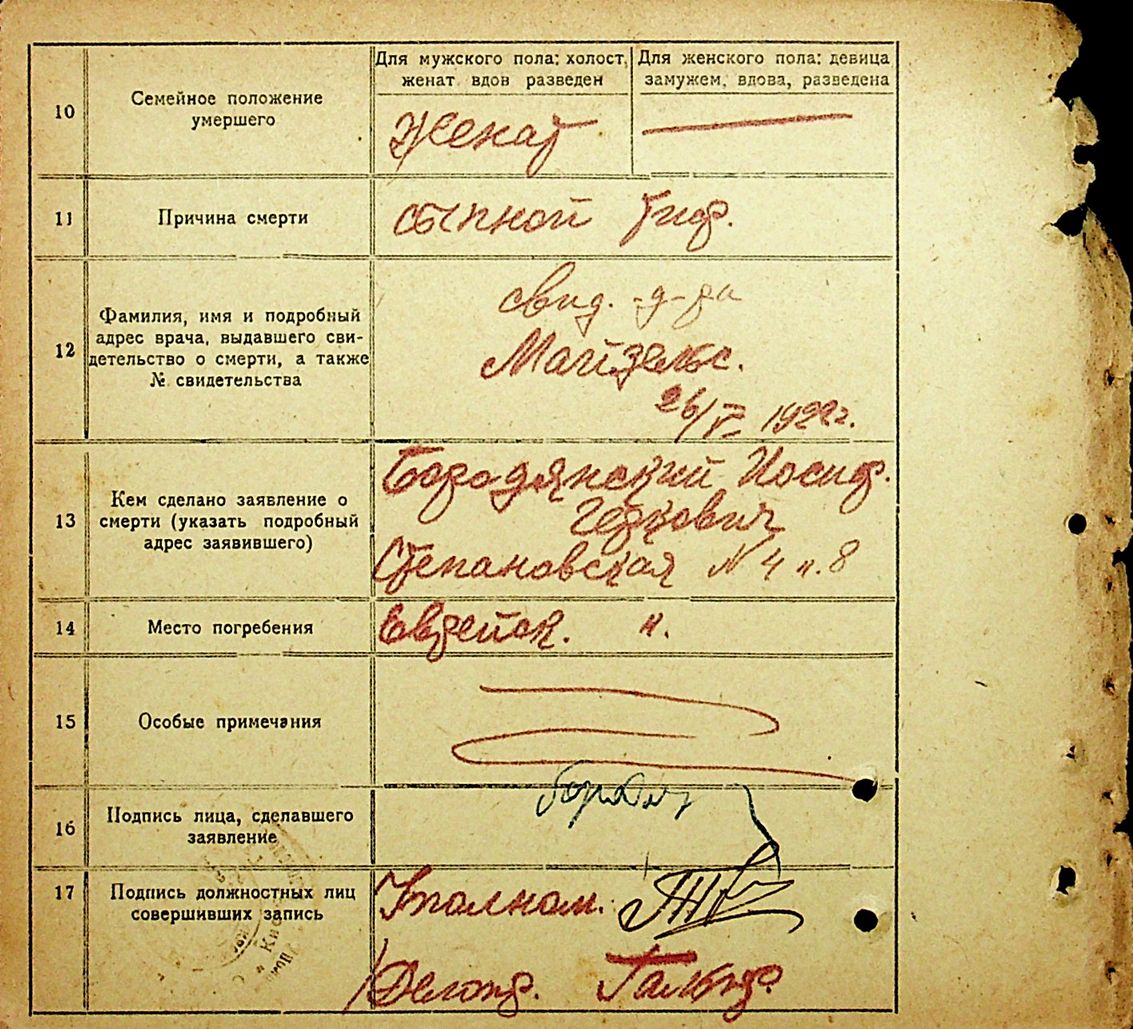 Для мужского пола: холост,
женат вдов разведен
Для женского пола: девица
замужем, вдова, разведена
10
Семейное положение
умершего
Женат
11
Причина смерти
сыпной тиф.
12
Фамилия, имя и подробный
адрес врача, выдавшего сви-
детельство о смерти, а также
№ свидетельства
свид. д-ра
Майзельс.
26/V 1922г.
13
Кем сделано заявление о
смерти (указать подробный
адрес заявившего)
Бородянский Иосиф.
Герцович
Степановская N 4 к. 8
14
Место погребения
Еврейск. к.
15
Особые примечания
16
Подпись лица, сделавшего
заявление
17
Подпись должностных лиц
совершивших запись
Уполном.
Делопр.